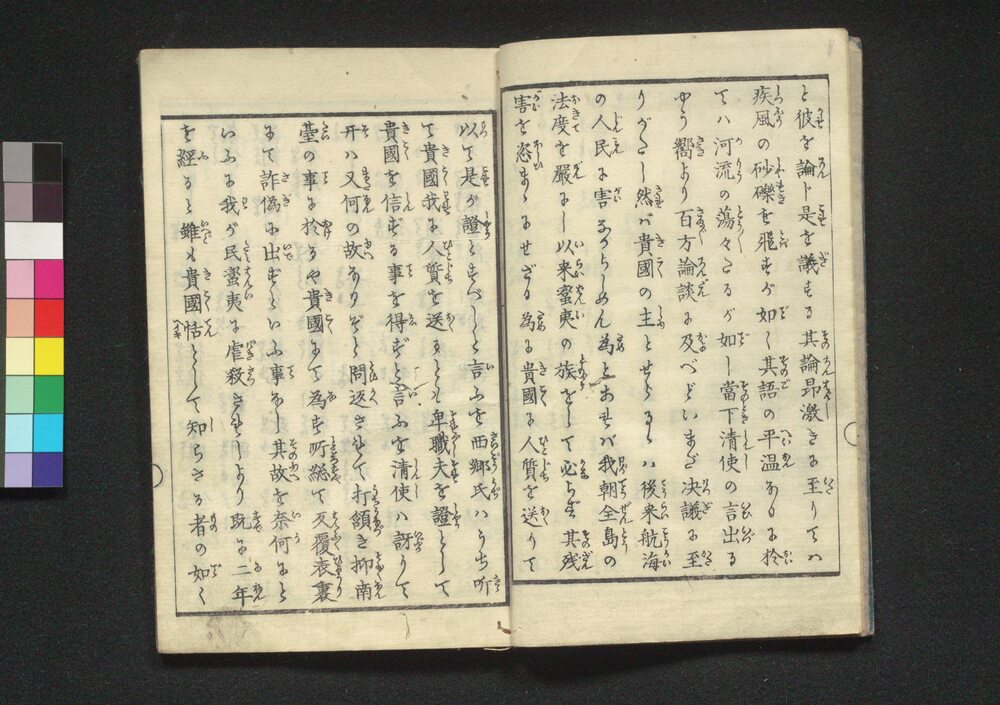 と彼を論じ是を議する其論昂激きに至りてハ
疾風の砂礫を飛すが如し其語の平温なるに於
てハ河流の蕩々たるが如し當下清使の言出る
やう嚮より百方論談に及べどいまだ決議に至
りがたし然バ貴國の主とせらるゝハ後来航海
の人民に害なからしめん為とあれバ我朝全島の
法度を嚴にし以来蛮夷の族をして必らず其残
害を恣まゝにせざる為に貴國に人質を送りて
以て是が證とすべしと言ふを西郷氏ハうち听
て貴國我に人質を送るとも卑職夫を證として
貴國を信ずる事を得ずと言ふを清使ハ訝りて
开ハ又何の故なるぞと問返されて打頷き抑南
臺の事に於るや貴國にて為す所総て反覆表裏
にて詐偽に出ずといふ事なし其故を奈何にと
いふに我が民蛮夷に虐殺されしより既に二年
を經ると雖も貴國恬として知らざる者の如く